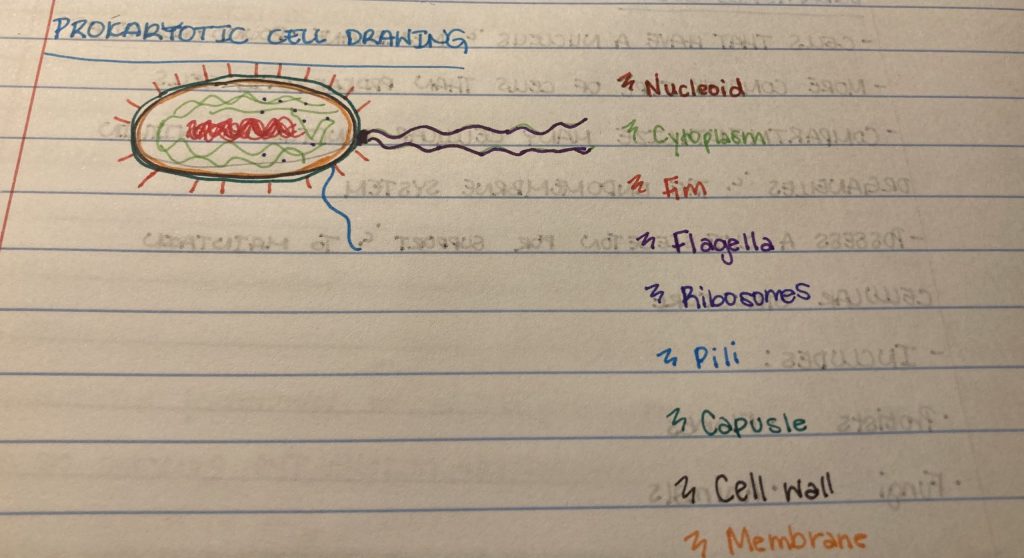 PROKARYOTIC CELL DRAWING
Nucleoid
Cytoplasm
Fim
Flagella
Ribosomes
Pili
Capusle
Cell wall
Membrane